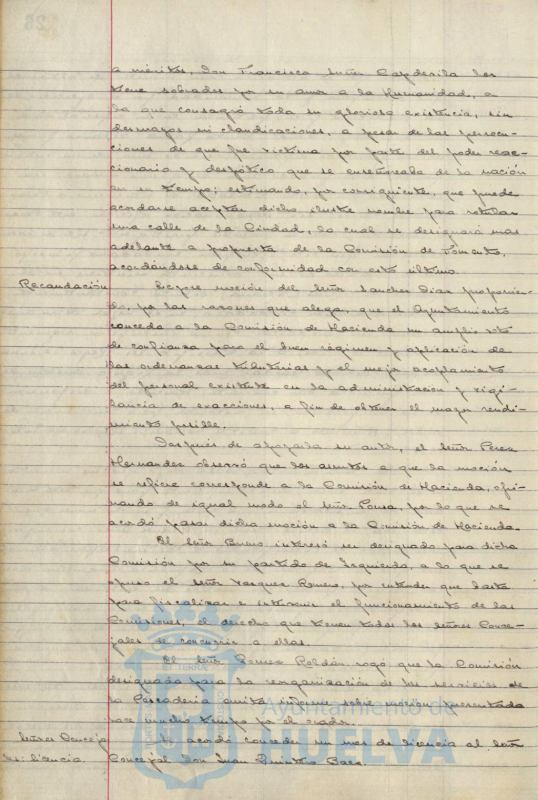 a méritos, Don Francisco Suñer Capdevila los
tiene sobrados por su amor a la Humanidad, a
la que consagró toda su gloriosa existencia, sin
desmayos ni claudicaciones, a pesar de las persecu-
ciones de que fue victima por parte del poder reac-
cionario y despótico que se enseñoreaba de la nación
en su tiempo; estimando, por consiguiente, que puede
acordarse aceptar dicho ilustre nombre para rotular
una calle de la Ciudad, la cual se designará mas
adelante a propuesta de la Comisión de Fomento,
acordándose de conformidad con este último.
Recaudación
Léese moción del Señor Sanchez Diaz proponien-
do, por las razones que alega, que el Ayuntamiento
conceda a la Comisión de Hacienda un amplio voto
de confianza para el buen régimen y aplicación de
las ordenanzas tributarias y el mejor acoplamiento
del personal existente en la administración y vigi-
lancia de exacciones, a fin de obtener el mayor rendi-
miento posible.
Después de apoyada su autor, el Señor Perez
Hernandez observó que los asuntos a que la moción
se refiere corresponde a la Comisión de Hacienda, opi-
nando de igual modo el Señor Ponsa, por lo que se
acordó pasar dicha moción a la Comisión de Hacienda.
El Señor Bueno interesó ser designado para dicha
Comisión por su partido de Izquierda, a lo que se
opuso el señor Vazquez Romero, por entender que basta
para fiscalizar e intervenir el funcionamiento de las
Comisiones, el derecho que tienen todos los señores Conce-
jales de concurrir a ellas.
El Señor Gomez Roldán rogó que la Comisión
designada para la reorganización de los servicios de
la Pescadería emita informe sobre moción presentada
hace mucho tiempo por el orador.
Señores Conceja
les: licencia.
Se acordó conceder un mes de licencia al Señor
Concejal Don Juan Quintero Baez.
Ayuntamiento de
HUELVA